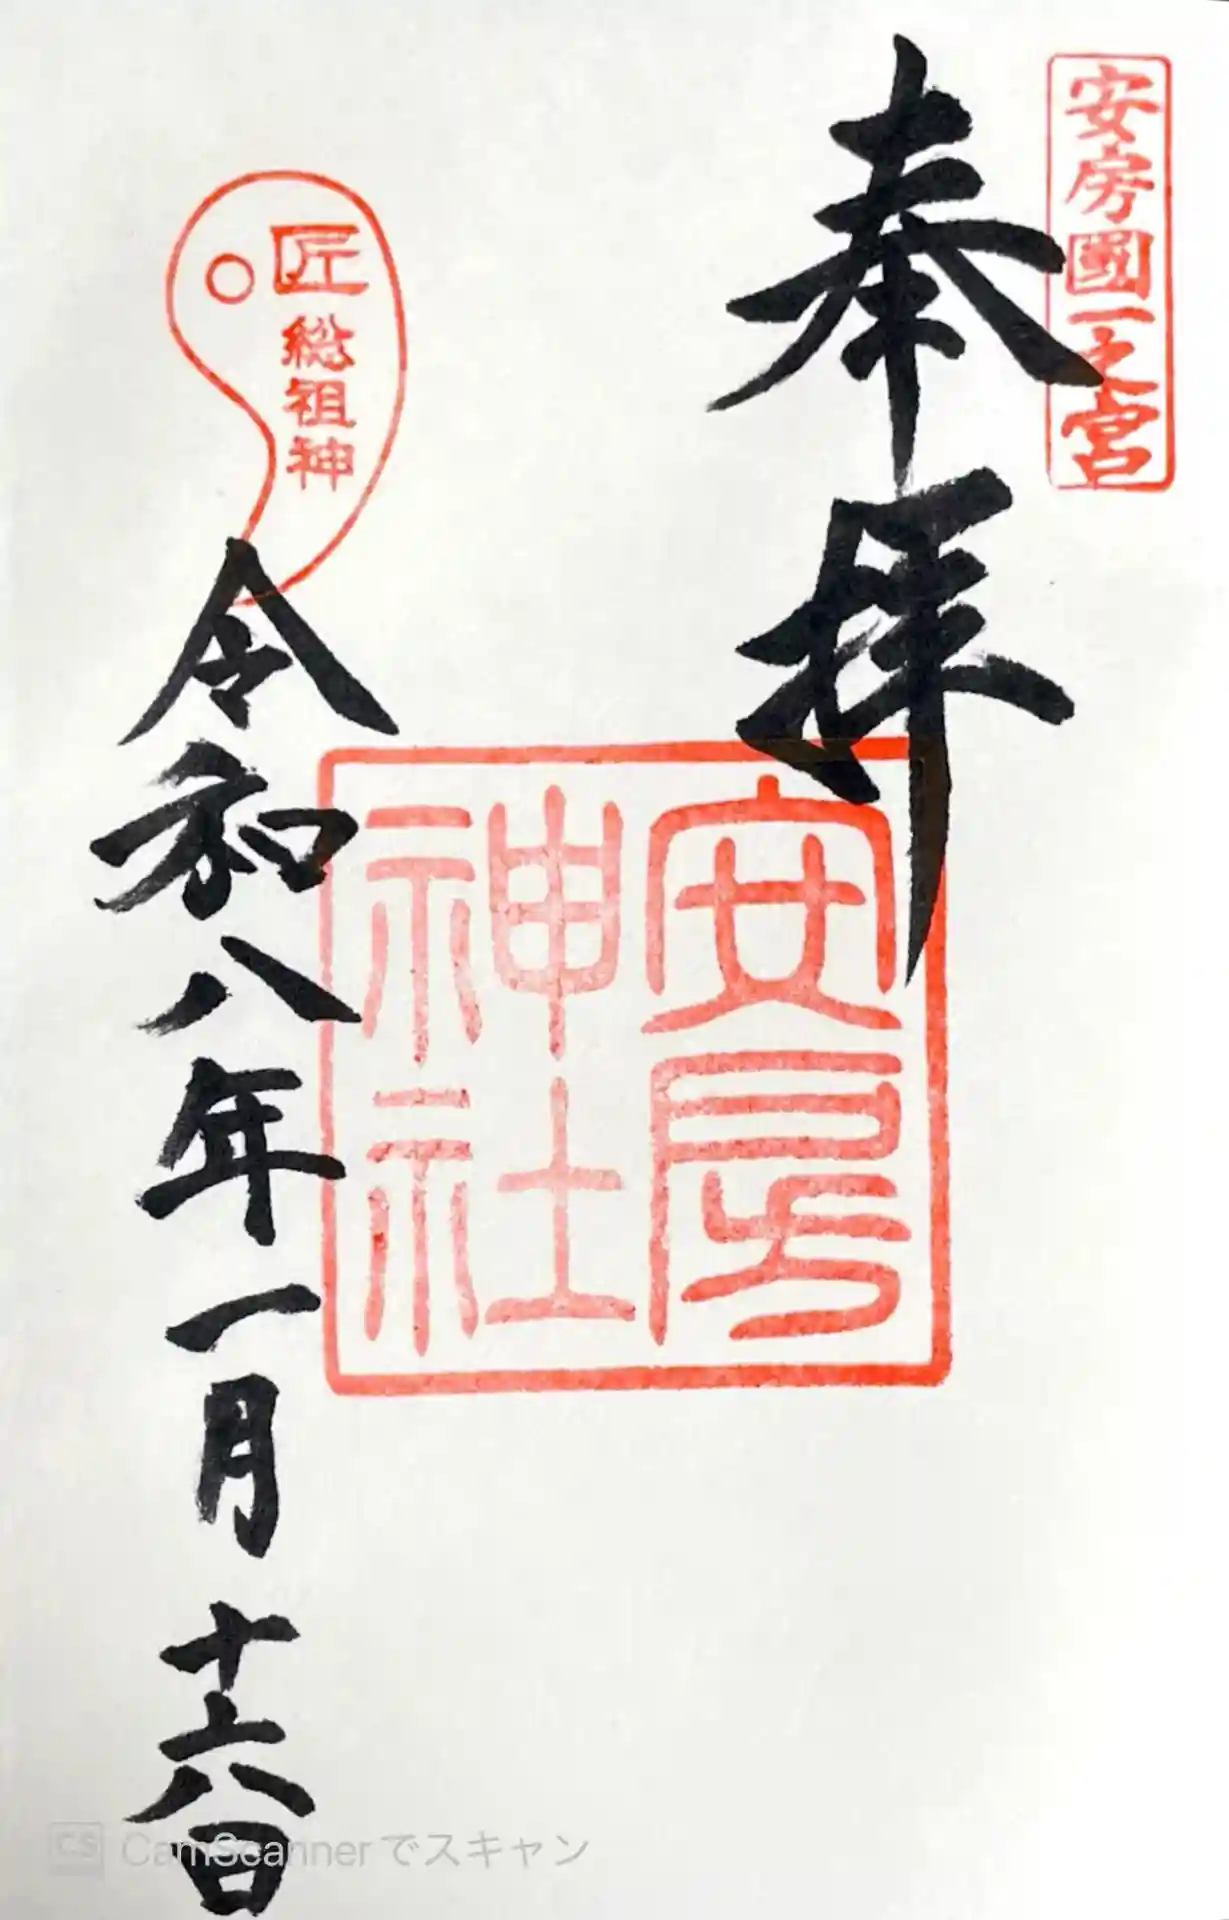 安房國一之宮
奉拝
安房神社
匠総祖神
令和八年一月十六日
CS CamScannerでスキャン